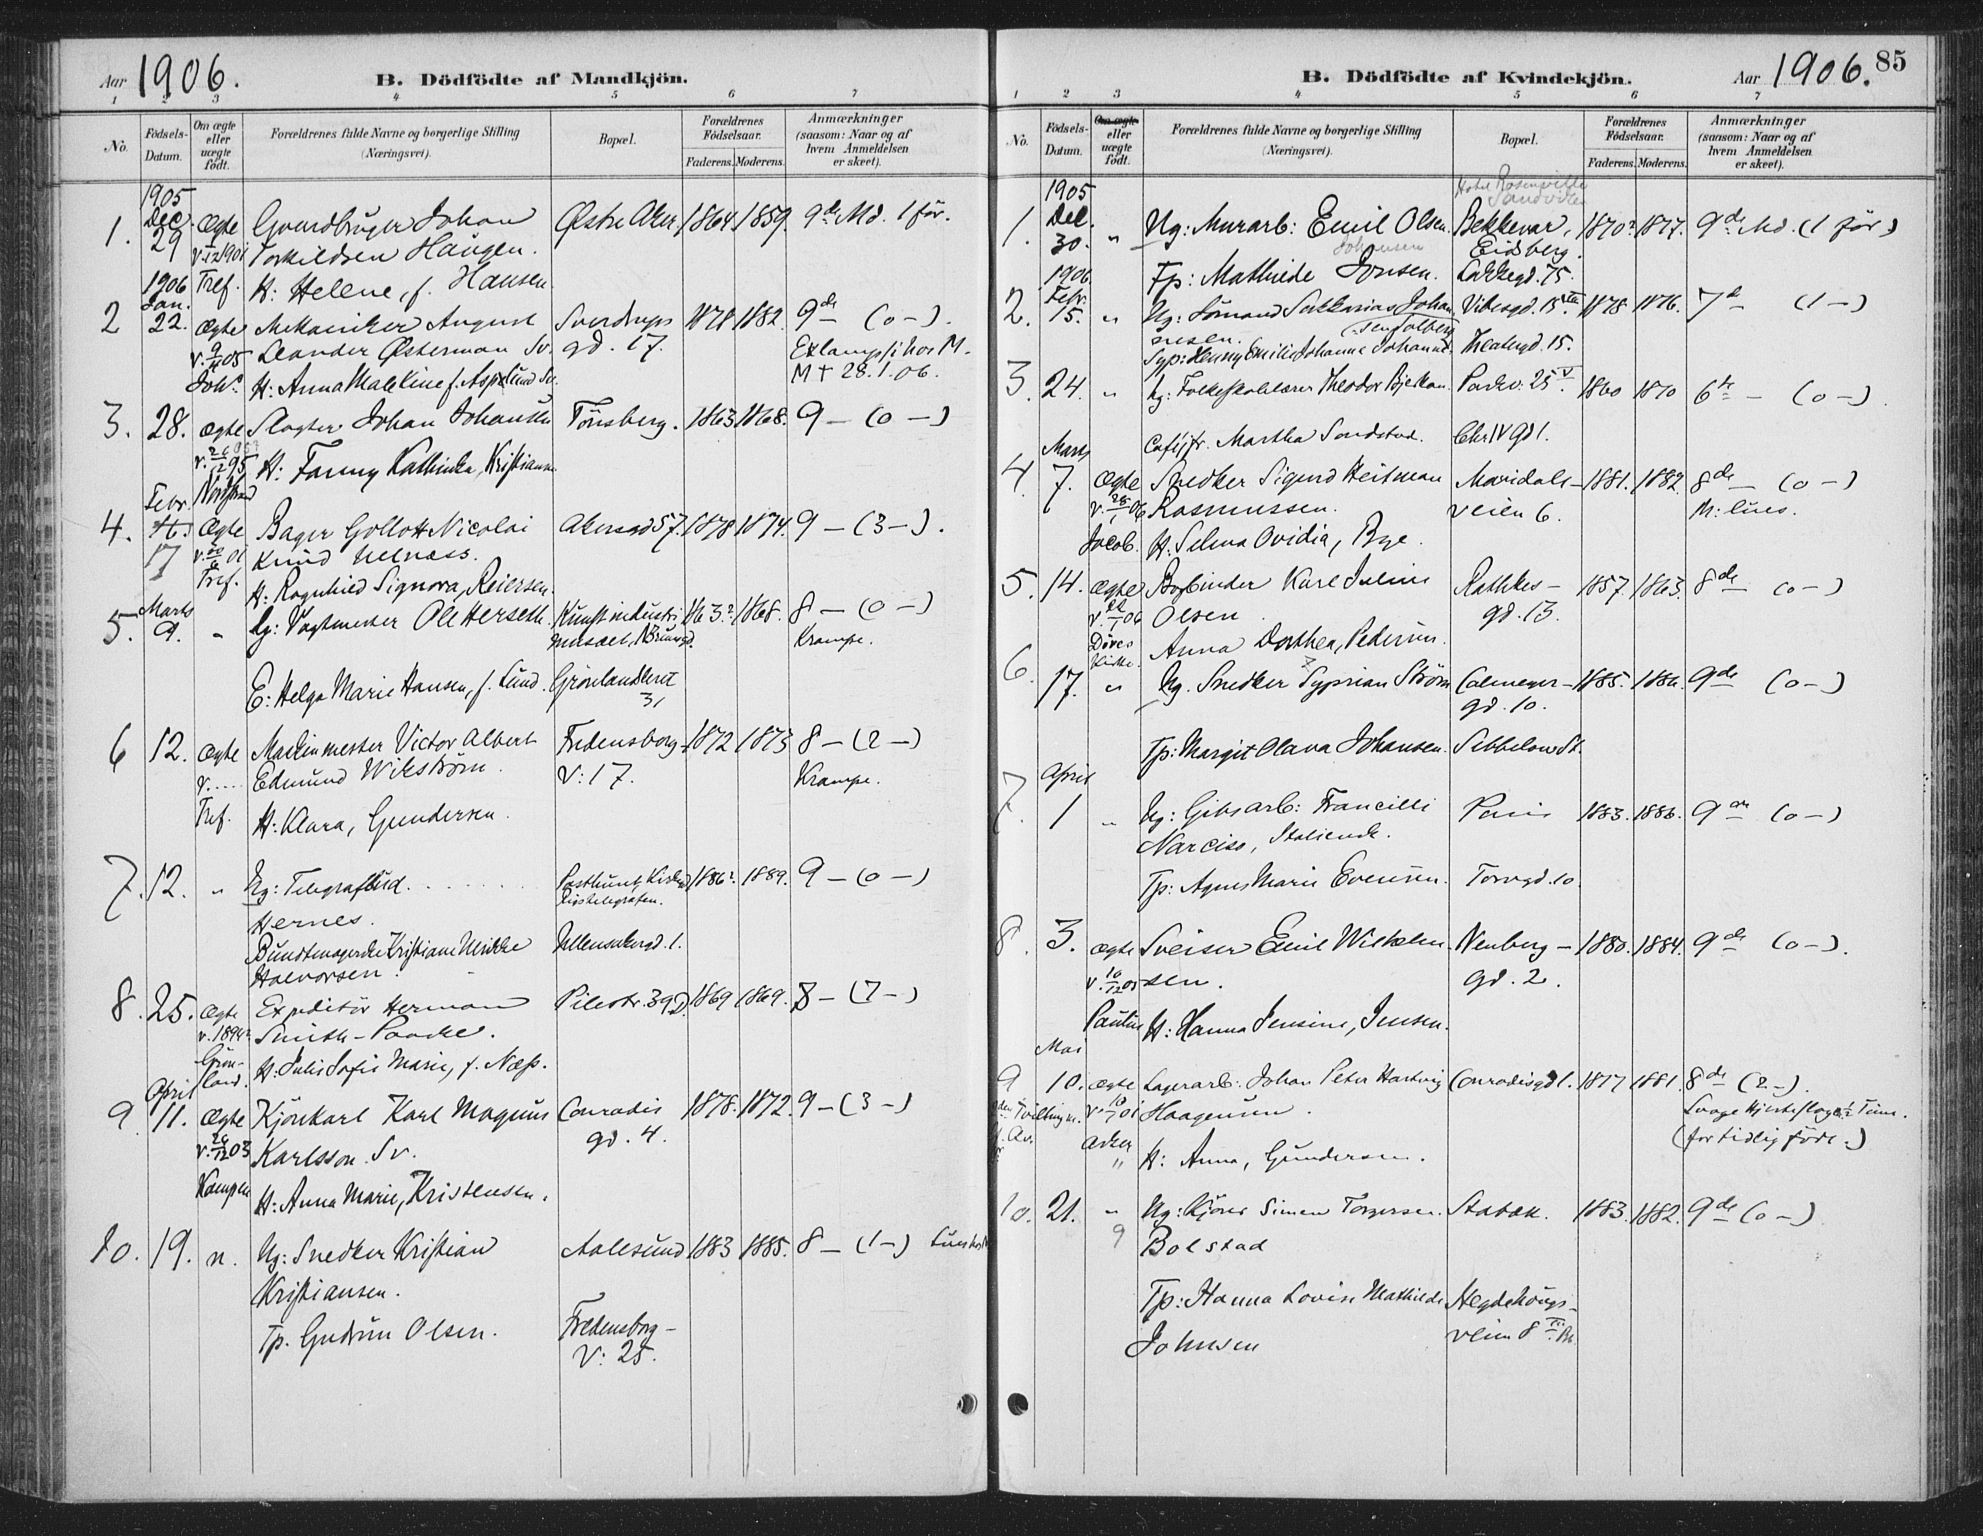 Aar 1906.
B. Dödfödte af Mandkjön.
1 2 3 4 5 6 7
No.
Födsels-Datum.
Om ægte eller uægte födt.
Forældrenes fulde Navne og borgerlige Stilling (Næringsvei).
Bopæl.
Forældrenes Födselsaar.
Faderens. Moderens.
Anmærkninger (saasom: Naar og af hvem Anmeldelsen er skeet).
1905
1. Dec. 29 Ægte Gaardbruger Johan Østre Aker. 1864 1859. 9de Md. 1 før.
Torkildsen Haugen.
Tref. H: Helene, f. Hansen
1906
Jan.
2 22. Ægte Mekaniker August Sverdrups 1878 1882. 9de — (0 —).
v. 9/11 05 Leander Østerman Sv. gd. 17. Eklampsi hos M.
Joh. H: Anna Malkine f. Asplund Sv. M † 28.1.06.
3. 28. Ægte Slagter Johan Johansen Tönsberg. 1863 1868. 9 — (0 —)
H: Fanny Kathinka, Kristiansen
Febr.
4. 17 Ægte Bager Gollott Nicolai Akersgd 57. 1878 1874. 9 — (3 —).
Knud Nelnæss.
Tref. H: Ragnhild Signora, Reiersen.
Marts
5. 9. „ Ug: Vagtmester Ole Herseth. Kunstindustri 1863? 1868. 8 — (0 —)
museet, Krampe.
E: Helga Marie Hansen, f. Lund. Grönlandsleret
31
6 12. Ægte Maskinmester Victor Albert Fredensborg- 1872 1873 8 — (2 —)
v..... Edmund Wikström. V: 17. Krampe.
Tref. H: Klara, Gundersen.
7. 12. „ Ug: Telegrafbud....... 1886? 1889. 9 — (0 —)
Hernes.
Bundtmagerske Kristiane Ulrikke Ullensakergd. 1.
Halvorsen.
8. 25. Ægte Expeditör Herman Pilestr. 39 D 1869 1869. 8 — (7 —)
v. 1894? Smith-Paacke.
Grön-
land. H: Julis Sofie Marie, f. Næss.
April
9 11. Ægte Kjörekarl Karl Magnus Conradis 1878. 1872. 9 — (3 —)
v. 26/12 03 Karlsson. Sv. gd. 4.
Kampen H: Anna Marie, Kristensen.
10. 19. n. Ug: Snedker Kristian Aalesund 1883 1885. 8 — (1 —)
Kristiansen.
Tp. Gudrun Olsen. Fredensborg-
V: 25.
B. Dödfödte af Kvindekjön.
Aar 1906. 85
1 2 3 4 5 6 7
No.
Födsels-Datum.
Om ægte eller uægte födt.
Forældrenes fulde Navne og borgerlige Stilling (Næringsvei).
Bopæl.
Forældrenes Födselsaar.
Faderens. Moderens.
Anmærkninger (saasom: Naar og af hvem Anmeldelsen er skeet).
Hotel Rosenvilde
Sandviken
1905
1. Dec. 30. „ Ug: Murarb: Emil Olsen. Bekkevar, 1870? 1877. 9de Md. (1 før)
Johansen Eidsberg.
Tp: Mathilde Jonsen. Lakkegd. 75.
1906
Febr.
2. 15. „ Ug: Sakkarias Johan Vibesgd. 15 1878 1876. 7de (1 —)
nesen. sen Solberg
Syp: Henny Emilie Johanne Johanns. Theatergd. 15.
3. 24. „ Ug: Folkeskolelærer Theodor Parkv. 25 V. 1860 1870 6te — (0 —).
Cafejfr. Martha Sandstad. Chr. IV gd 1.
Marts
4. 7. Ægte Snedker Sigurd Heitman Maridals- 1881. 1882. 8de — (0 —)
Rasmussen. veien 6. M: lues.
Jacob. H: Selma Ovidia, Bye.
5. 14. Ægte Bogbinder Karl Julius Rathkes- 1857. 1863. 8de — (0 —)
Olsen. gd. 13.
Döves
Kirke. Anna Dorthea, Pedersen.
6. 17. „ Ug. Snedker Syprian Ström Calmeyer- 1885. 1886. 9de (0 —)
gd. 10.
Tp: Margit Olava Johansen. Sibbelows St.
April
7. 1 „ Ug: Gibsarb: Francilli Paris 1883. 1886. 9de (0 —)
Narciso, Italiensk.
Tp: Agnes Marie Evensen. Torvgd. 10.
8. 3. Ægte Sveiser Emil Wilhelm- Neuberg- 1880. 1884. 9de (0 —).
v. 10/12 05 sen. gd. 2.
Paulus H: Hanna Jensine, Jensen.
Mai
9 10. Ægte Lagerarb: Johan Peter Hartvig Conradisgd 1. 1877 1881. 8de (2 —).
Tvilling Haagensen. Svage Hjerteslag Time.
Aker (for tidlig født.)
„ H: Anna, Gundersen.
10. 21. „ Ug: Kjører Simen Torgersen. Stabæk. 1883. 1882. 9de (0 —)
9 Bolstad
Tp: Hanna Lovise Mathilde Hegdehaugs-
Johnsen veien 8